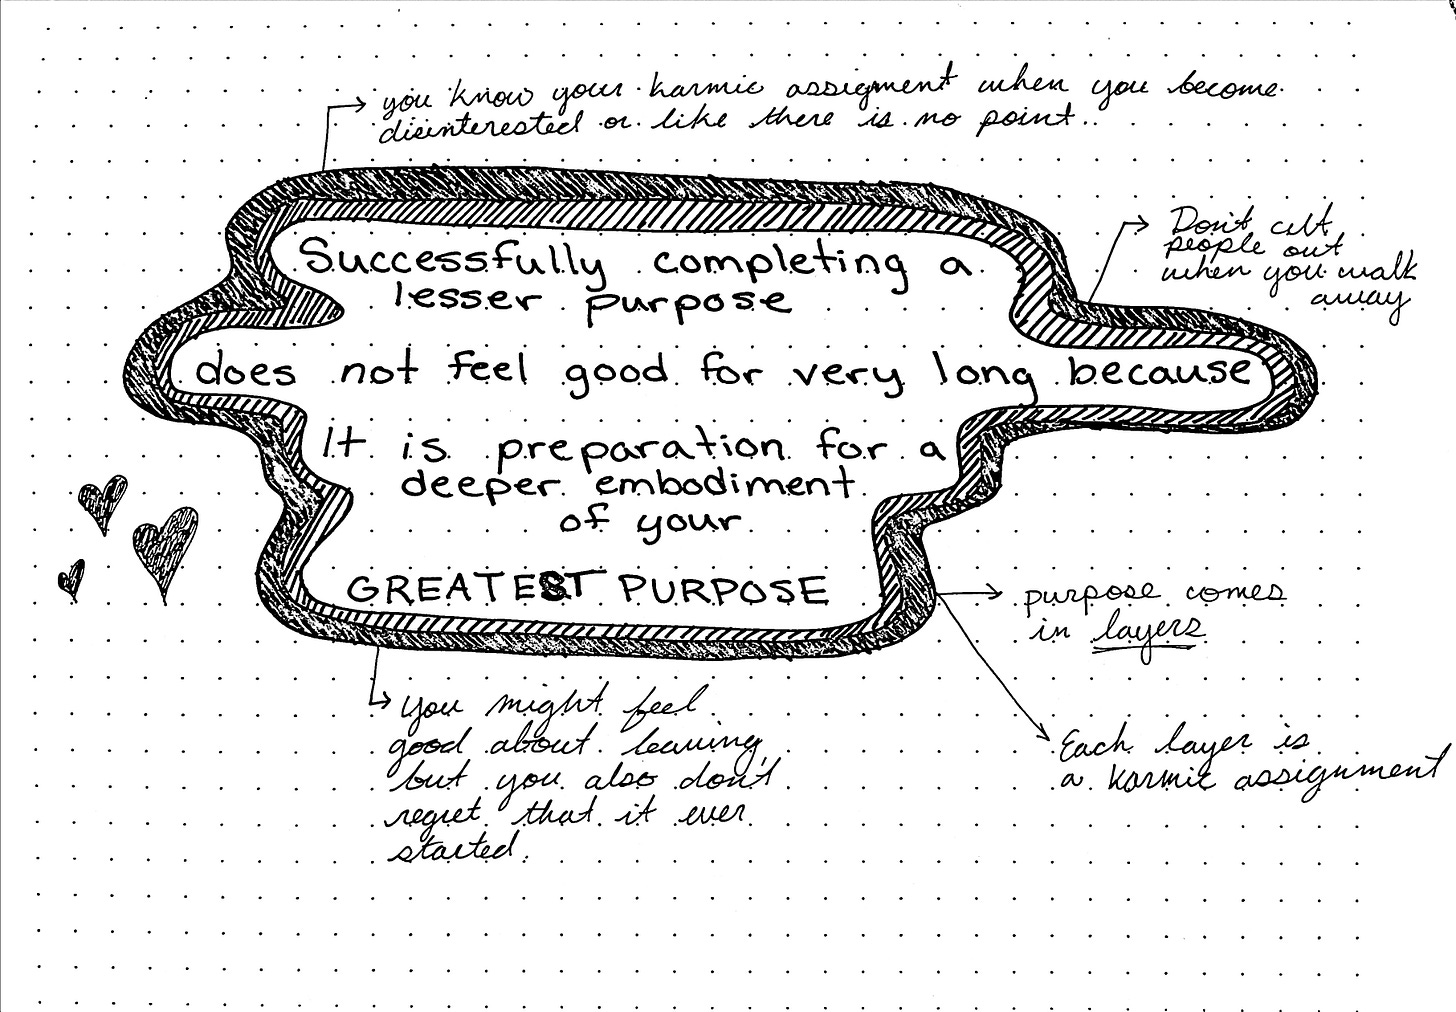 you know your karmic assigment when you become
disinterested or like there is no point..
Don't cut
people out
when you walk
away
Successfully completing a
lesser purpose
does not feel good for very long because
It is preparation for a
deeper embodiment
of your
GREATEST PURPOSE
purpose comes
in layers
You might feel
good about leaving,
but you also don't
regret that it ever
started.
Each layer is
a karmic assignment